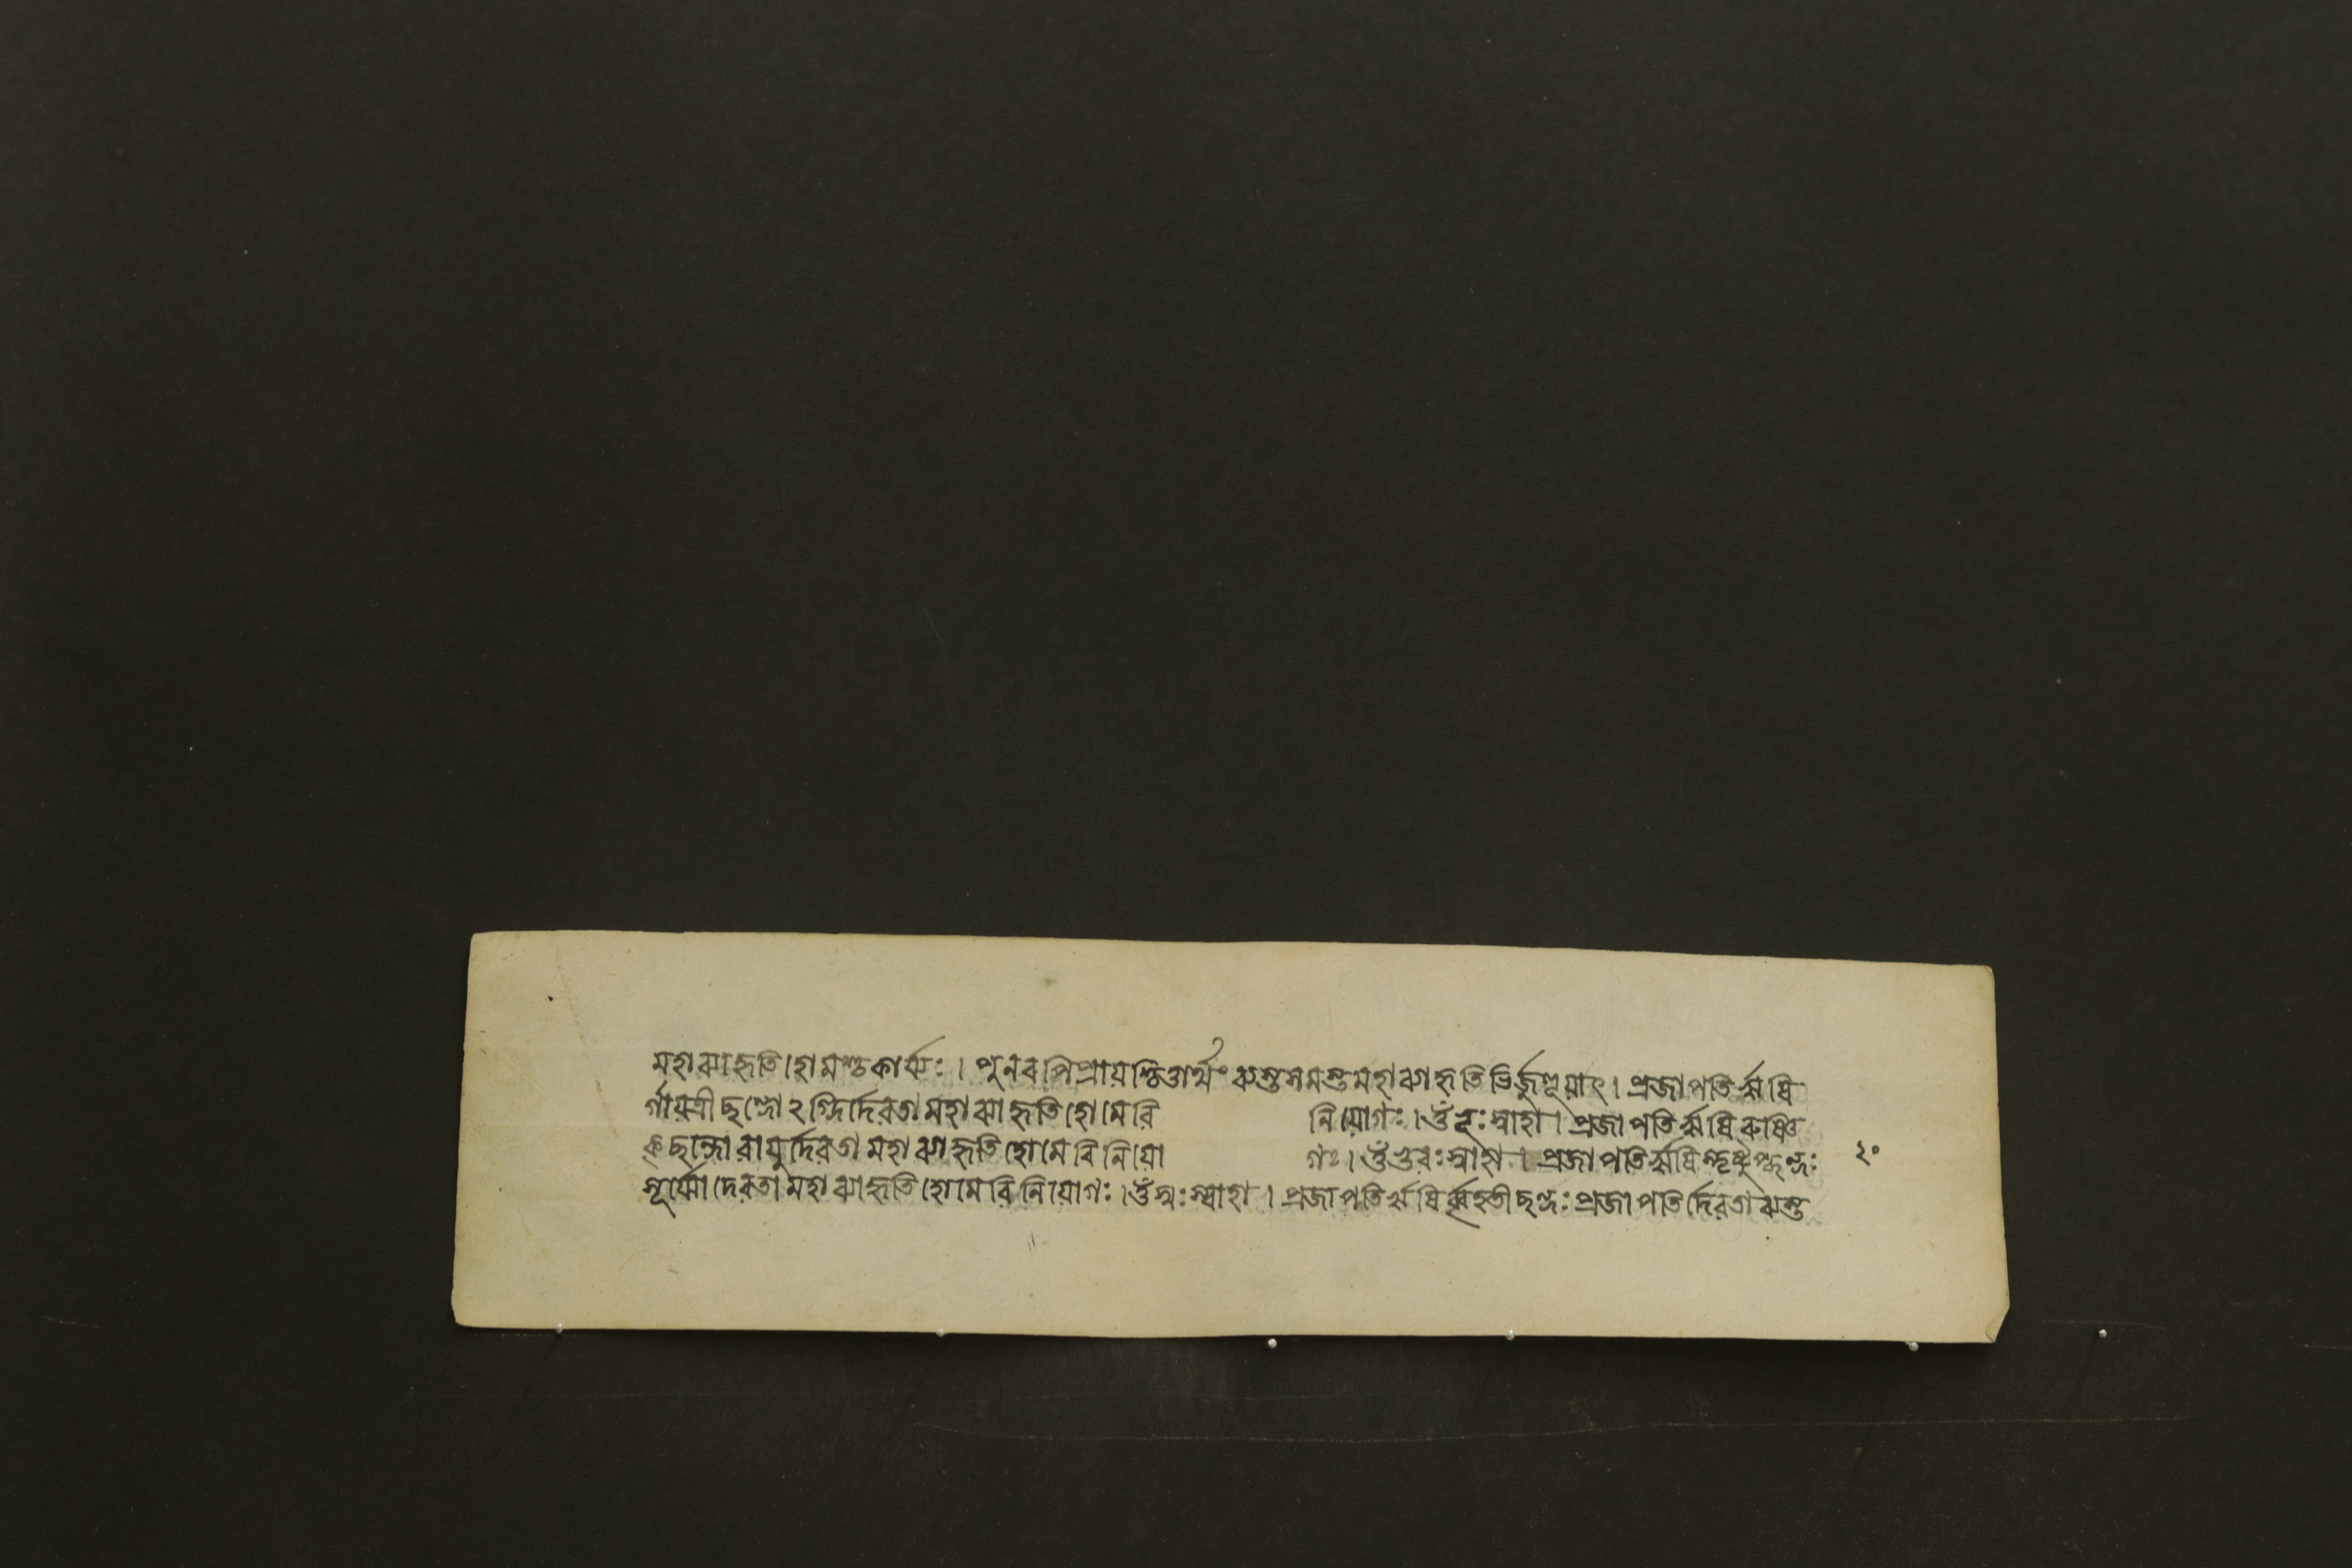 মহাব্যাহৃতিহোমস্তু কার্য্যঃ । পুনরপি প্রায়শ্চিত্তার্থং ব্যস্তসমস্তমহাব্যাহৃতিভির্জুহুয়াৎ । প্রজাপতিরৃষি
র্গায়ত্রীছন্দোঽগ্নির্দেবতা মহাব্যাহৃতিহোমে বিনিয়োগঃ । ওঁ ভূঃ স্বাহা । প্রজাপতিরৃষিরুষ্ণি
ক্ছন্দো বায়ুর্দেবতা মহাব্যাহৃতিহোমে বিনিয়োগঃ । ওঁ ভুবঃ স্বাহা । প্রজাপতিরৃষিরনুষ্টুপ্ছন্দঃ ২০
সূর্য্যো দেবতা মহাব্যাহৃতিহোমে বিনিয়োগঃ । ওঁ স্বঃ স্বাহা । প্রজাপতিরৃষির্বৃহতীছন্দঃ প্রজাপতির্দেবতা ব্যস্ত